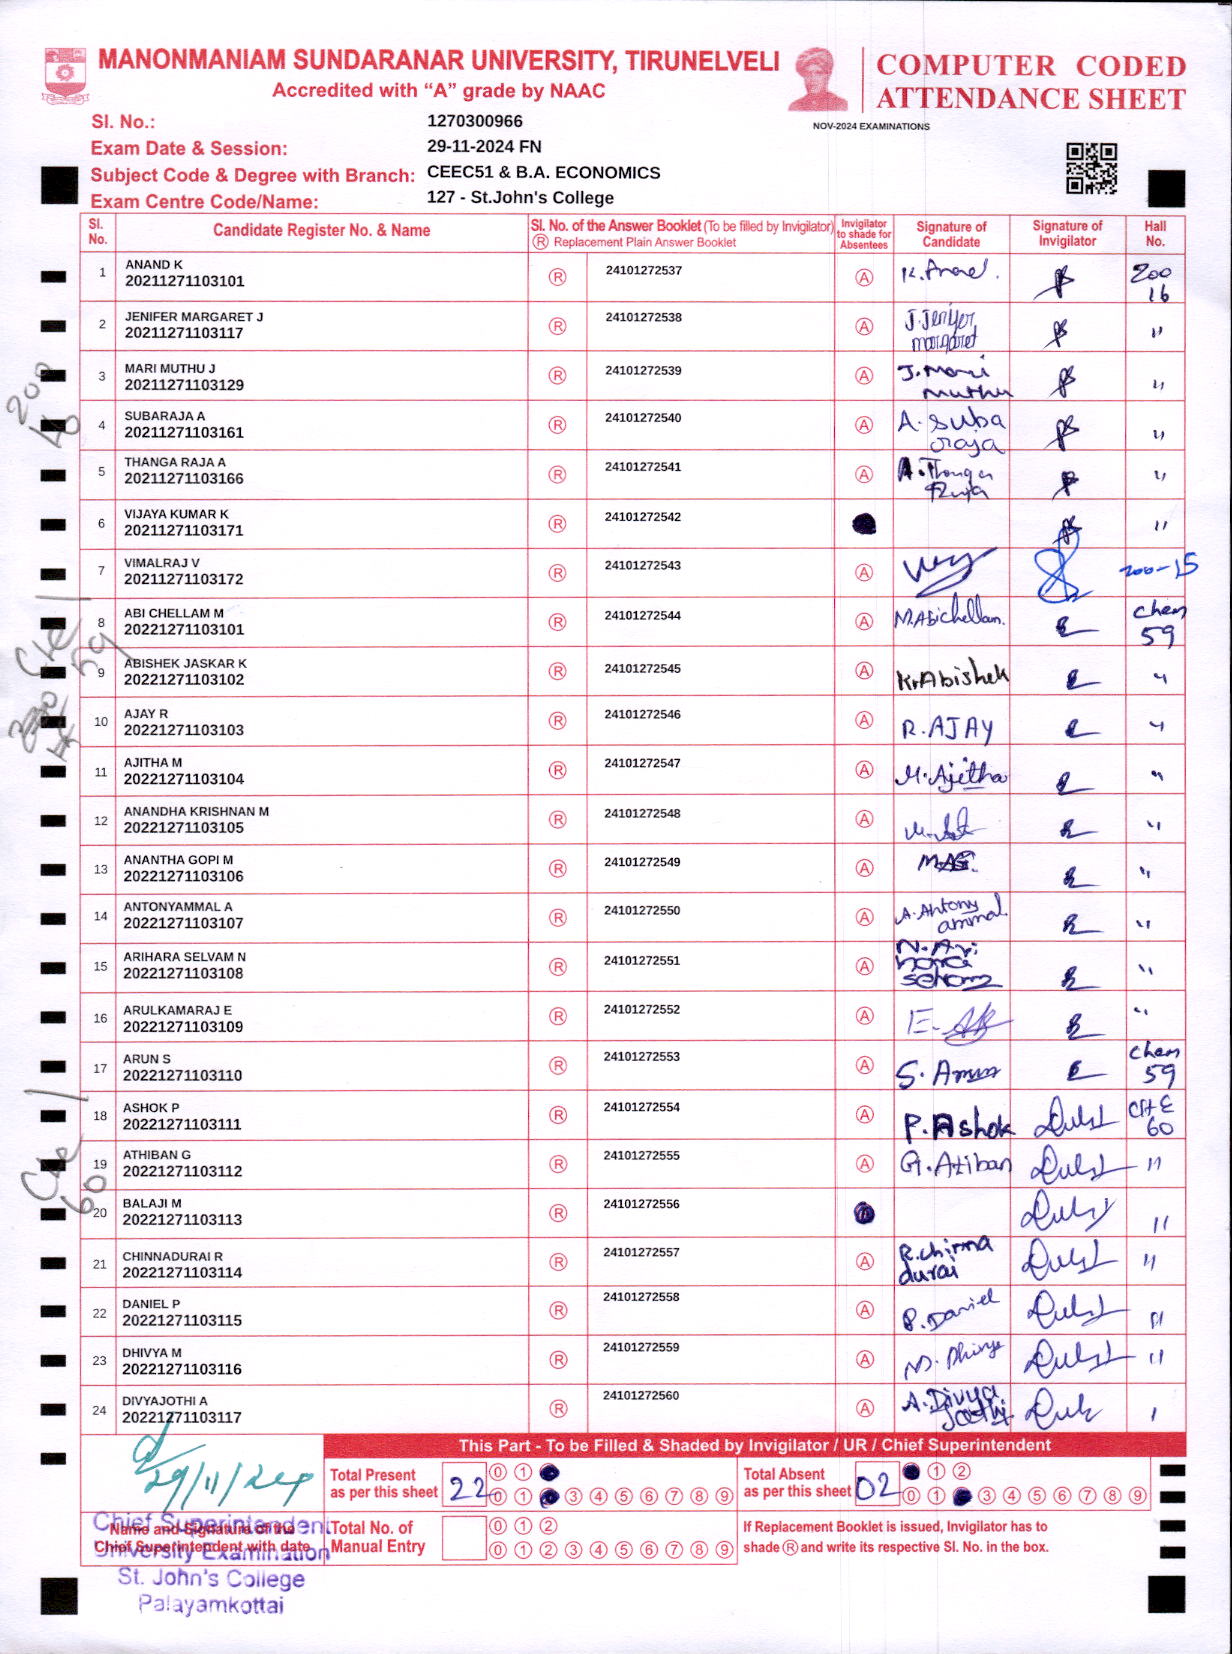 MANONMANIAM SUNDARANAR UNIVERSITY, TIRUNELVELI
Accredited with “A” grade by NAAC
COMPUTER CODED
ATTENDANCE SHEET
NOV-2024 EXAMINATIONS
Sl. No.: 1270300966
Exam Date & Session: 29-11-2024 FN
Subject Code & Degree with Branch: CEEC51 & B.A. ECONOMICS
Exam Centre Code/Name: 127 - St.John's College
Sl. No. Candidate Register No. & Name Sl. No. of the Answer Booklet (To be filled by Invigilator) Ⓡ Replacement Plain Answer Booklet Invigilator to shade for Absentees Signature of Candidate Signature of Invigilator Hall No.
1 ANAND K 20211271103101 Ⓡ 24101272537 Ⓐ K. Anand. 200 16
2 JENIFER MARGARET J 20211271103117 Ⓡ 24101272538 Ⓐ J. Jenifer margaret "
3 MARI MUTHU J 20211271103129 Ⓡ 24101272539 Ⓐ J. Mari muthu "
4 SUBARAJA A 20211271103161 Ⓡ 24101272540 Ⓐ A. Suba raja "
5 THANGA RAJA A 20211271103166 Ⓡ 24101272541 Ⓐ A. Thanga Raja "
6 VIJAYA KUMAR K 20211271103171 Ⓡ 24101272542 "
7 VIMALRAJ V 20211271103172 Ⓡ 24101272543 Ⓐ 200-15
8 ABI CHELLAM M 20221271103101 Ⓡ 24101272544 Ⓐ M. Abichellam. Chem 59
9 ABISHEK JASKAR K 20221271103102 Ⓡ 24101272545 Ⓐ K. Abishek "
10 AJAY R 20221271103103 Ⓡ 24101272546 Ⓐ R. AJAY "
11 AJITHA M 20221271103104 Ⓡ 24101272547 Ⓐ M. Ajitha "
12 ANANDHA KRISHNAN M 20221271103105 Ⓡ 24101272548 Ⓐ "
13 ANANTHA GOPI M 20221271103106 Ⓡ 24101272549 Ⓐ M.AG. "
14 ANTONYAMMAL A 20221271103107 Ⓡ 24101272550 Ⓐ A. Antony ammal. "
15 ARIHARA SELVAM N 20221271103108 Ⓡ 24101272551 Ⓐ N. Ari "
16 ARULKAMARAJ E 20221271103109 Ⓡ 24101272552 Ⓐ E. "
17 ARUN S 20221271103110 Ⓡ 24101272553 Ⓐ S. Arun Chem 59
18 ASHOK P 20221271103111 Ⓡ 24101272554 Ⓐ P. Ashok CHE 60
19 ATHIBAN G 20221271103112 Ⓡ 24101272555 Ⓐ G. Atiban "
20 BALAJI M 20221271103113 Ⓡ 24101272556 "
21 CHINNADURAI R 20221271103114 Ⓡ 24101272557 Ⓐ R. chinna durai "
22 DANIEL P 20221271103115 Ⓡ 24101272558 Ⓐ P. Daniel "
23 DHIVYA M 20221271103116 Ⓡ 24101272559 Ⓐ M. Dhivya "
24 DIVYAJOTHI A 20221271103117 Ⓡ 24101272560 Ⓐ A. Divya Jothi
This Part - To be Filled & Shaded by Invigilator / UR / Chief Superintendent
29/11/24
Total Present as per this sheet 22 0 1 0 1 3 4 5 6 7 8 9
Total Absent as per this sheet 02 1 2 0 1 3 4 5 6 7 8 9
Name and Signature of the Chief Superintendent with date
Total No. of Manual Entry 0 1 2 0 1 2 3 4 5 6 7 8 9
If Replacement Booklet is issued, Invigilator has to shade Ⓡ and write its respective Sl. No. in the box.
Chief Superintendent
University Examination
St. John's College
Palayamkottai